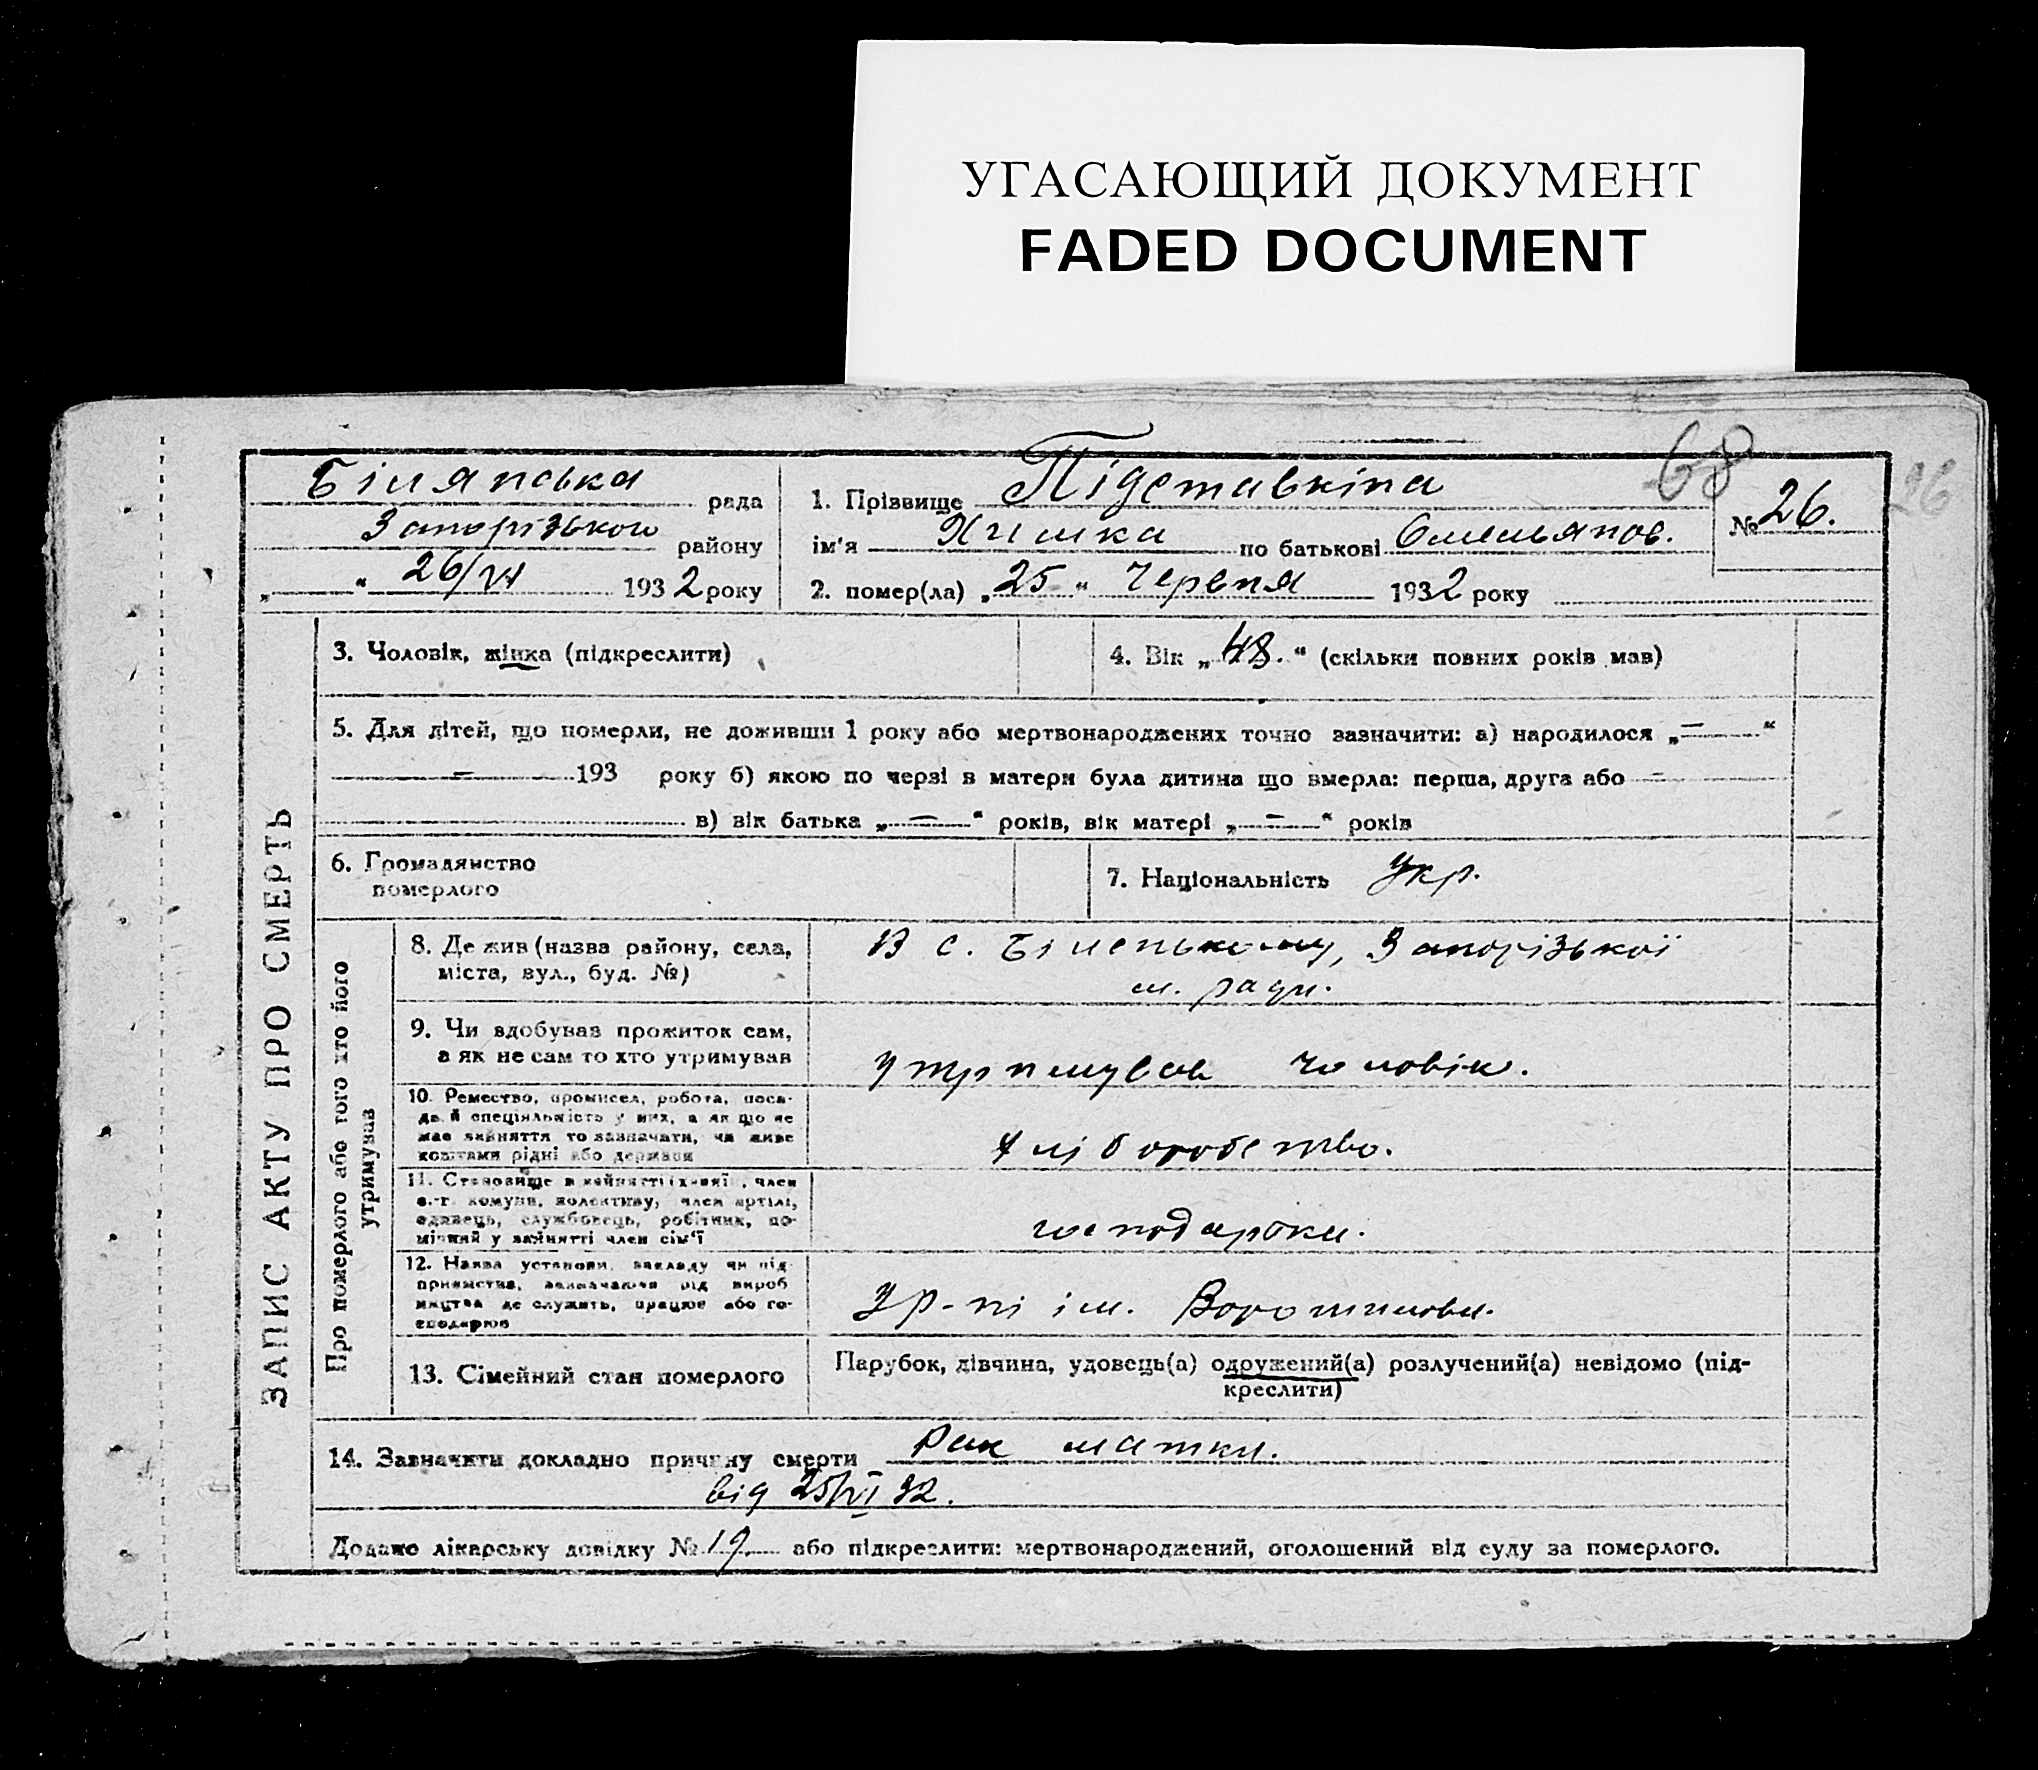 УГАСАЮЩИЙ ДОКУМЕНТ
FADED DOCUMENT
68
26
Білянська рада
Запорізького району
„ “ 26/VI 1932 року
1. Прізвище Підставкіна
ім'я Химка по батькові Омельянов.
№ 26.
2. помер(ла) „25“ Червня 1932 року
ЗАПИС АКТУ ПРО СМЕРТЬ
3. Чоловік, жінка (підкреслити)
4. Вік „48.“ (скільки повних років мав)
5. Для дітей, що померли, не доживши 1 року або мертвонароджених точно зазначити: а) народилося „—“
— 193 року б) якою по черзі в матери була дитина що вмерла: перша, друга або —
в) вік батька „—“ років, вік матері „—“ років
6. Громадянство
померлого
7. Національність Укр.
Про померлого або того хто його
утримував
8. Де жив (назва району, села,
міста, вул., буд. №)
В с. Біленькому, Запорізької
м. ради.
9. Чи вдобував прожиток сам,
а як не сам то хто утримував
Утримував чоловік.
10. Ремество, промисел, робота, поса-
да й спеціяльність у них, а як що не
має зайняття то зазначити, чи живе
коштами рідні або держави
Хліборобство.
11. Становище в зайнятті (хазяїн, член
с.-г. комуни, колективу, член артілі,
одинець, службовець, робітник, по-
мічний у зайнятті член сім'ї
господарки.
12. Назва установи, закладу чи під-
приємства, зазначаючи рід вироб
ництва де служить, працює або го-
сподарює
У р-пі ім. Ворошилова.
13. Сімейний стан померлого
Парубок, дівчина, удовець(а) одружений(а) розлучений(а) невідомо (під-
креслити)
14. Зазначити докладно причину смерти Рак матки.
від 25/VI 32.
Додано лікарську довідку № 19 або підкреслити: мертвонароджений, оголошений від суду за померлого.